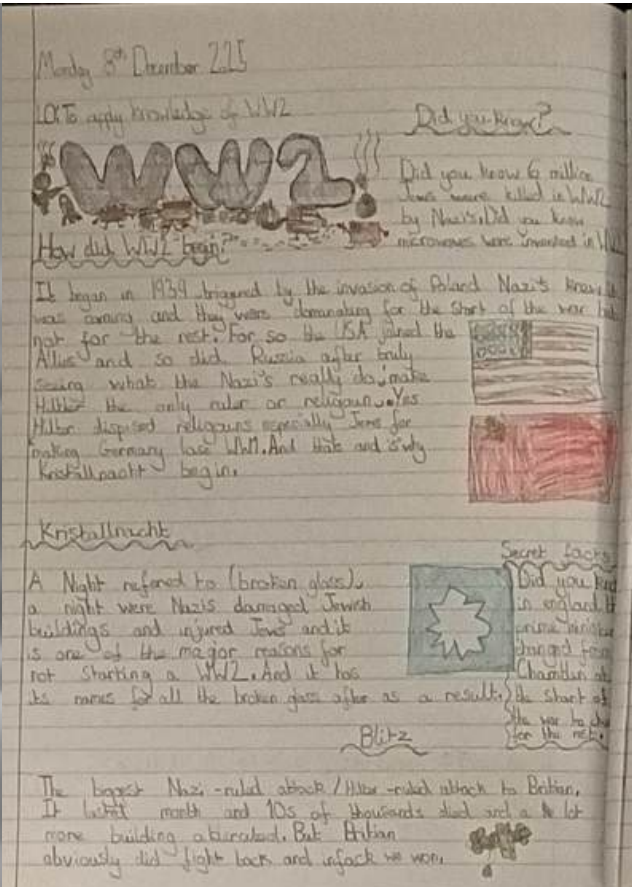 Monday 8th December 2025
LO: To apply knowledge of WW2
WW2!
Did you know?
Did you know 6 million
Jews were killed in WW2
by Nazi's. Did you know
microwaves were invented in
How did WW2 begin?
It began in 1939 triggered by the invasion of Poland Nazi's knew it
was coming and they were domanating for the start of the war but
not for the rest. For so the USA joined the
Allies and so did Russia after truly
seeing what the Nazi's really do, make
the only ruler or religoun. Yes
Hitler dispised religouns especially Jews for
making Germany lose WW1. And thats and is why
Kristallnacht begin.
Kristallnacht
A Night refered to (broken glass).
a night were Nazis damaged Jewish
buildings and injured Jews and it
is one of the major reasons for
not starting a WW2. And it has
its names for all the broken glass after as a result.
Secret facts
Did you
in england
prime
changed from
the start of
the war to
for the rest.
Blitz
The biggest Nazi-ruled attack / Hitler-ruled attack to Britian.
It month and 10s of thousands died and a lot
more building But Britian
obviously did fight back and infack we won.